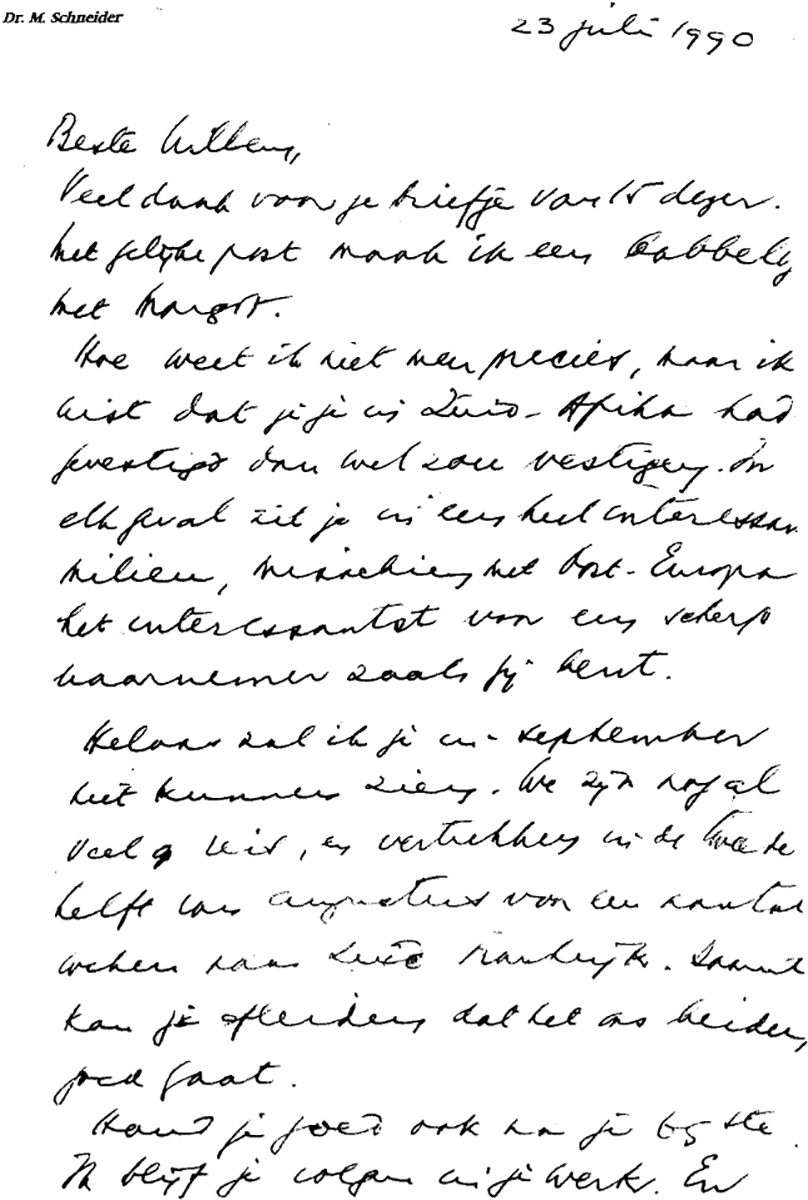 Dr. M. Schneider
23 juli 1990
Beste Willem,
Veel dank voor je briefje van 15 dezer.
Met gelijke post maak ik een babbeltj
met Margot.
Hoe weet ik niet meer precies, maar ik
wist dat je je in Zuid-Afrika had
gevestigd dan wel zou vestigen. In
elk geval zit je in een heel interessan
milieu, misschien met Oost-Europa
het interessantst voor een scherp
waarnemer zoals jij bent.
Helaas zal ik je in september
niet kunnen zien. We zijn nogal
veel op reis, en vertrekken in de tweede
helft van augustus voor een aantal
weken naar Zuid Frankrijk. Daaruit
kan je afleiden dat het ons beiden
goed gaat.
Houd je goed ook na je 65 ste.
Ik blijf je volgen in je werk. En